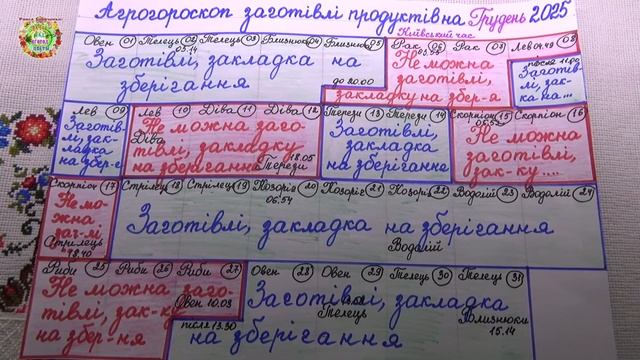 Агрогороскоп заготівлі продуктів на Грудень 2025
Київський час
Овен 01 Телець 02 Телець 03 Близнюк 04 Близнюк 05 Рак 06 Рак 07 Лев 04.49 08
03.14
Заготівлі, закладка на
зберігання
до 20.00
Не можна
заготівлі,
закладку на збер-я
після 11.00
Заготів-
лі, зак-
ка на...
Лев 09 Лев 10 Діва 11 Діва 12 Терези 13 Терези 14 Скорпіон 15 Скорпіон 16
Заготів-
лі, зак-
ладка
на збер-є
Діва
Не можна заго-
тівлі, закладку
на зберігання
18.05
Терези
Заготівлі,
закладка
на зберігання
Не можна
заготівлі,
зак-ку....
Скорпіон 17 Стрілець 18 Стрілець 19 Козоріг 20 Козоріг 21 Козоріг 22 Водолій 23 Водолій 24
06.54
Не мо-
жна
заг-лі
Стрілець
18.40
Заготівлі, закладка на зберігання
Водолій
Риби 25 Риби 26 Риби 27 Овен 28 Овен 29 Телець 30 Телець 31
Не можна заго-
тівлі, зак-ку
на збер-ня
Овен 10.03
після 13.30
Заготівлі, закладка
на зберігання
Телець
Близнюки
15.14